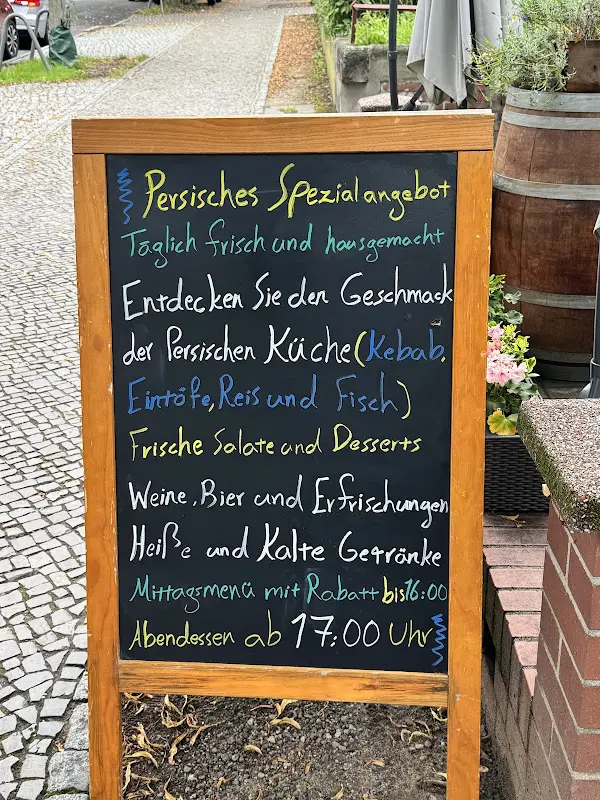 Persisches Spezialangebot
Täglich frisch und hausgemacht
Entdecken Sie den Geschmack
der Persischen Küche (Kebab,
Eintöfe, Reis und Fisch)
Frische Salate und Desserts
Weine, Bier und Erfrischungen
Heiße und Kalte Getränke
Mittagsmenü mit Rabatt bis 16:00
Abendessen ab 17:00 Uhr